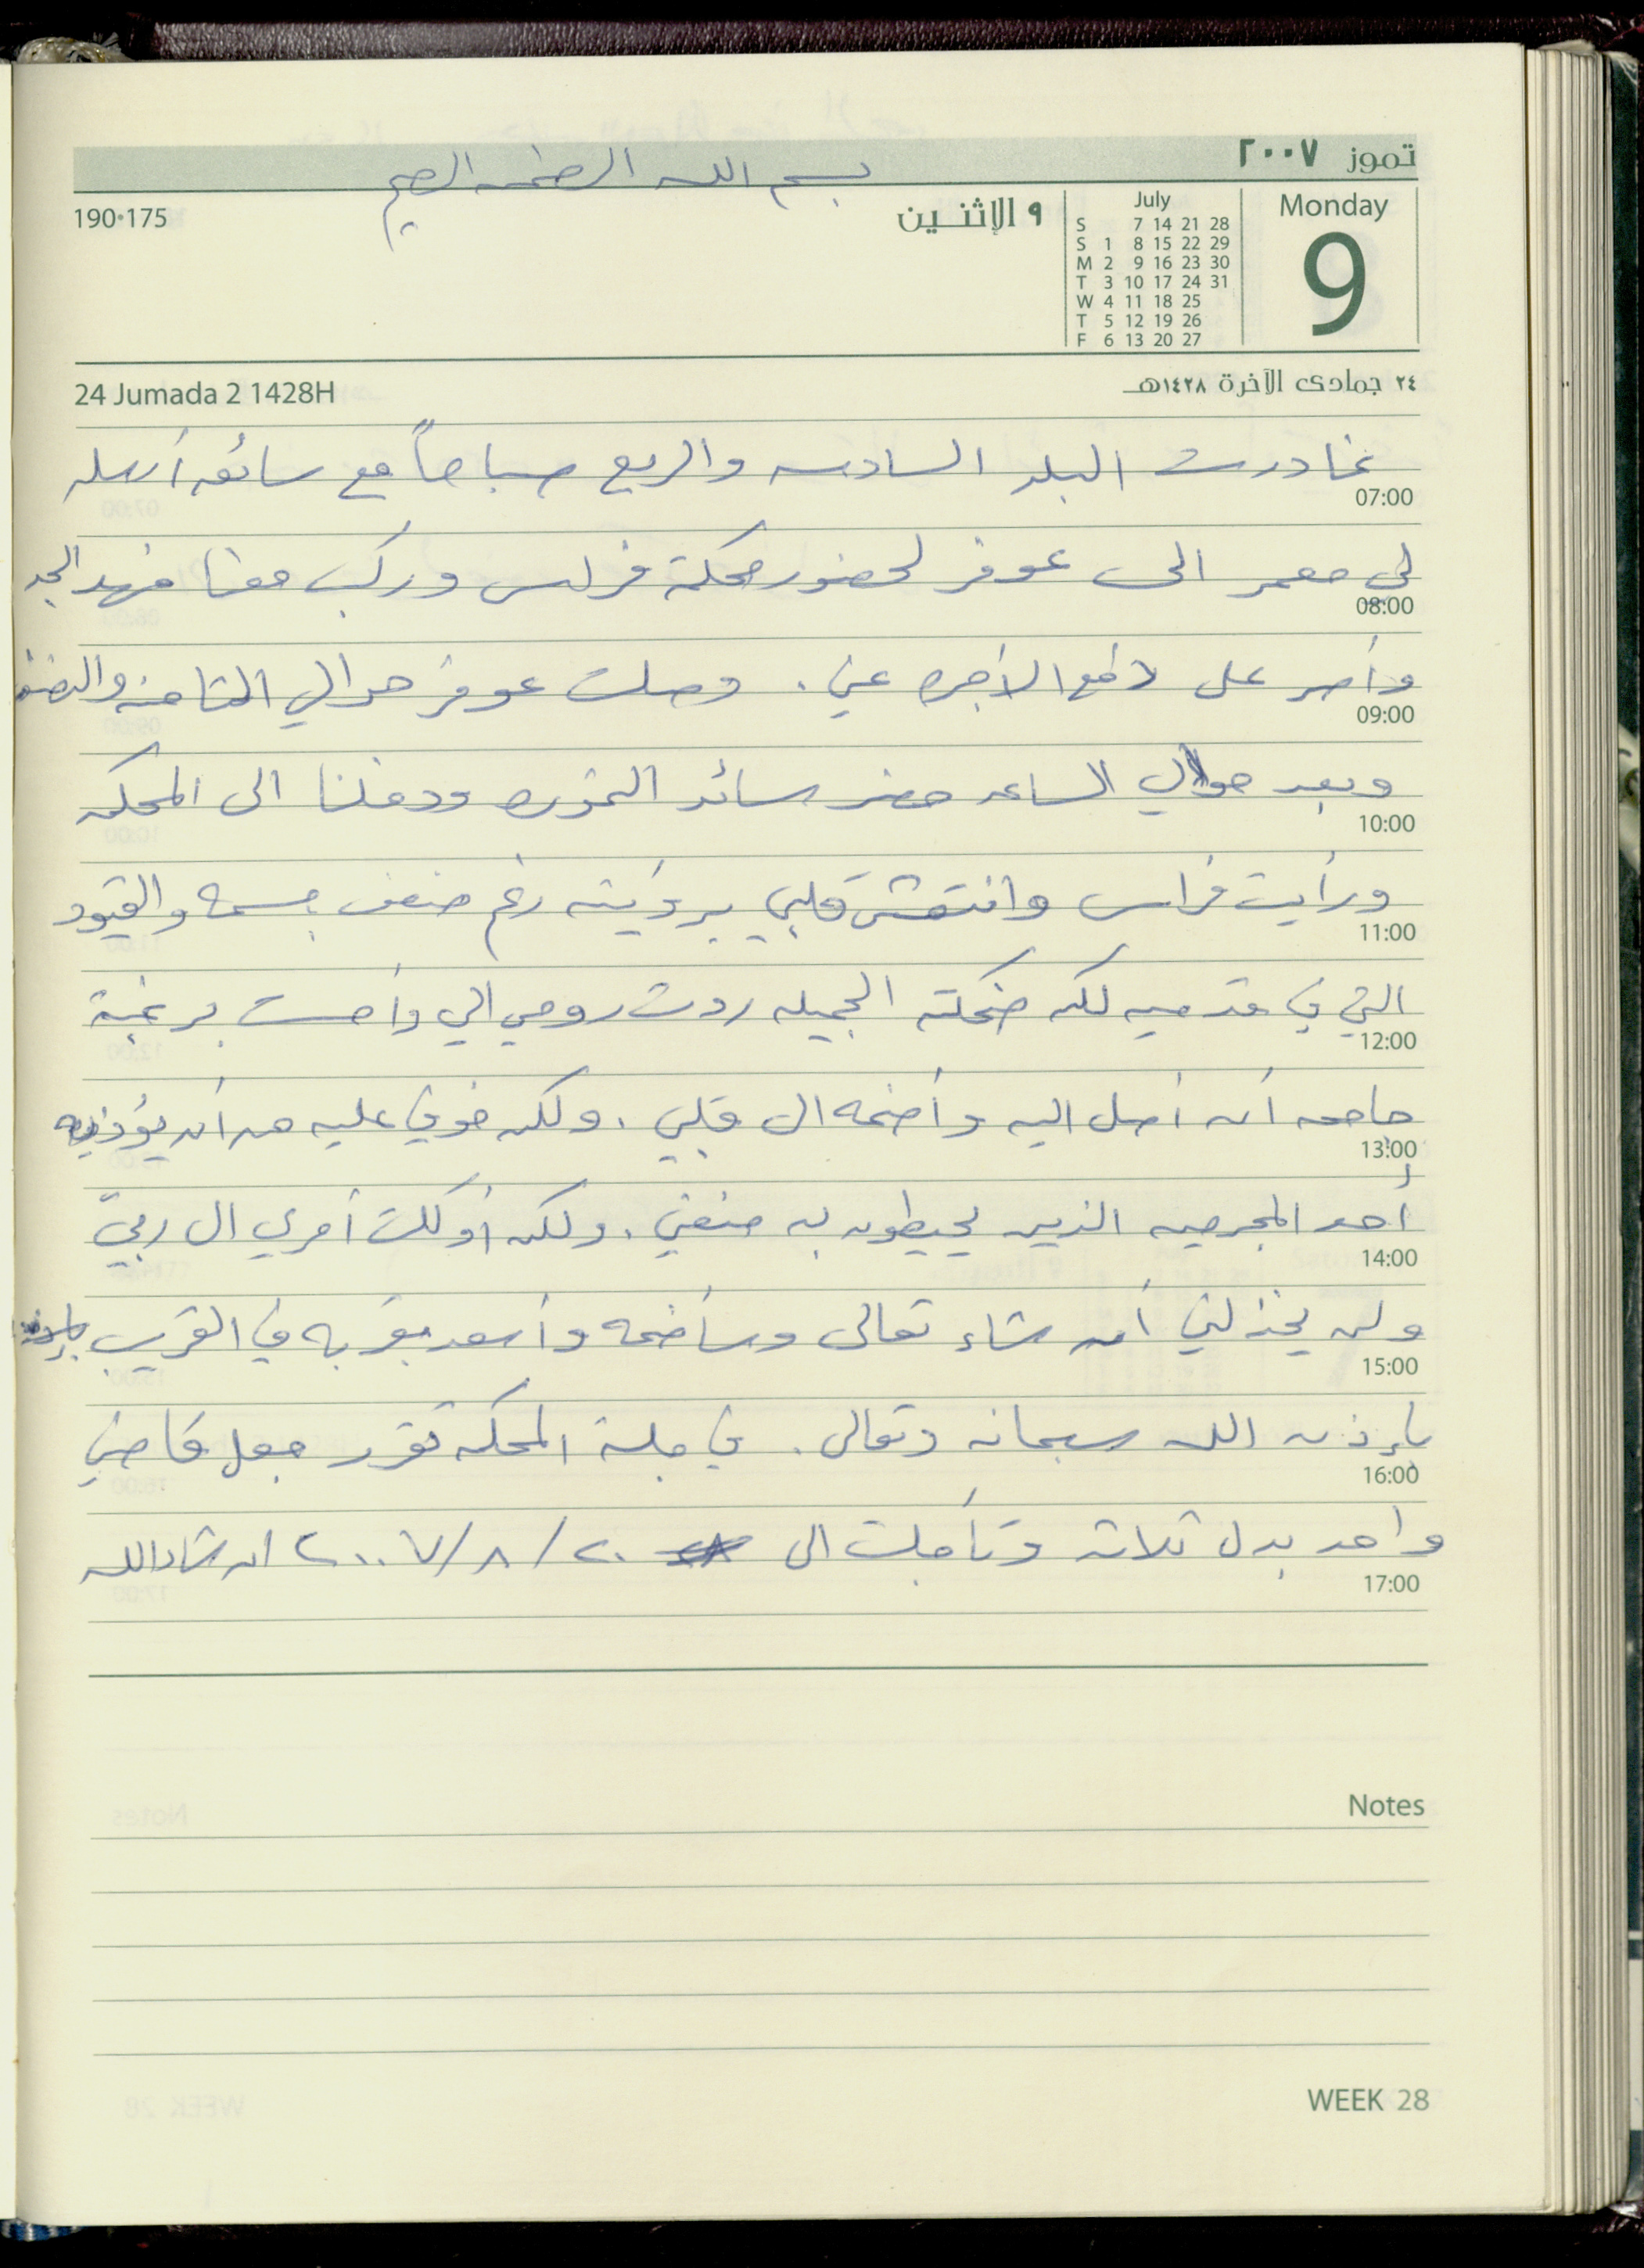 تموز ٢٠٠٧
بسم الله الرحمن الرحيم
190•175
٩ الإثنـين
July
S 7 14 21 28
S 1 8 15 22 29
M 2 9 16 23 30
T 3 10 17 24 31
W 4 11 18 25
T 5 12 19 26
F 6 13 20 27
Monday
9
24 Jumada 2 1428H
٢٤ جمادى الآخرة ١٤٢٨هـ
غادرت البلد السادسه والربع صباحاً مع سائق أرسله
07:00
لي معمر الى عوفر لحضور محكمة فراس وركب معنا فهد
08:00
وأصر على دفع الأجره عني . وصلت عوفر حوالي الثامنه والنصف
09:00
وبعد حوالي الساعه حضر سائد ودخلنا الى المحكمه
10:00
ورأيت فراس وانتعش قلبي برؤيته رغم ضعف جسمه والقيود
11:00
التي في قدميه لكن ضحكته الجميله ردت روحي الي وأحسست برغبة
12:00
جامحه أن أصل اليه وأضمه الى قلبي . ولكن خوفي عليه من أن يؤذيه
13:00
أحد المجرمين الذين يحيطون به منعني . ولكن أوكلت أمري الى ربيّ
14:00
ولن يخذلني أن شاء تعالى وسأضمه وأسعد بقربه في القريب
15:00
بإذن الله سبحانه وتعالى . في جلسة المحكمه تقرر جعل قاضي
16:00
واحد بدل ثلاثه وتأجلت الى ٢٠/٨/٢٠٠٧ ان شاء الله
17:00
Notes
WEEK 28